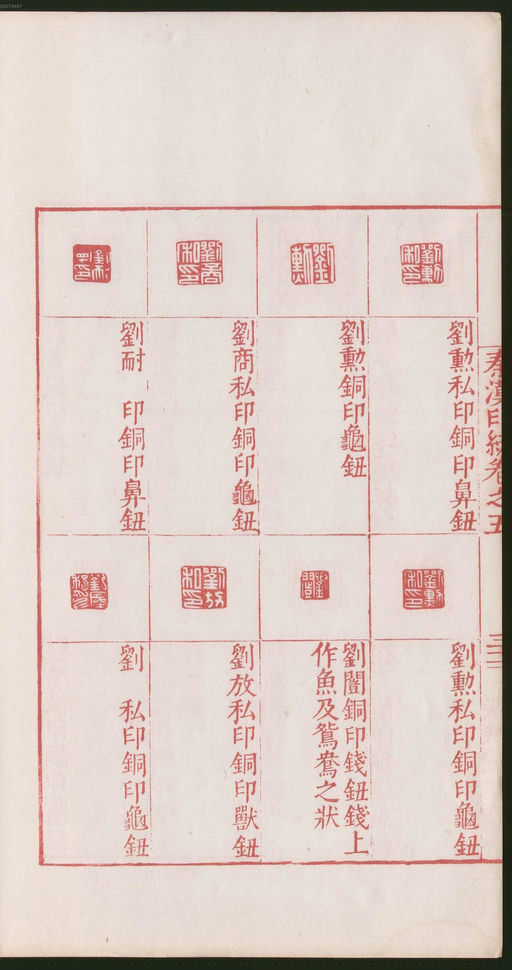 00073487
秦漢印統卷之五
劉勳私印銅印鼻鈕
劉勳銅印龜鈕
劉商私印銅印龜鈕
劉耐 印銅印鼻鈕
劉勳私印銅印龜鈕
劉闓銅印錢鈕錢上
作魚及鴛鴦之狀
劉放私印銅印獸鈕
劉 私印銅印龜鈕